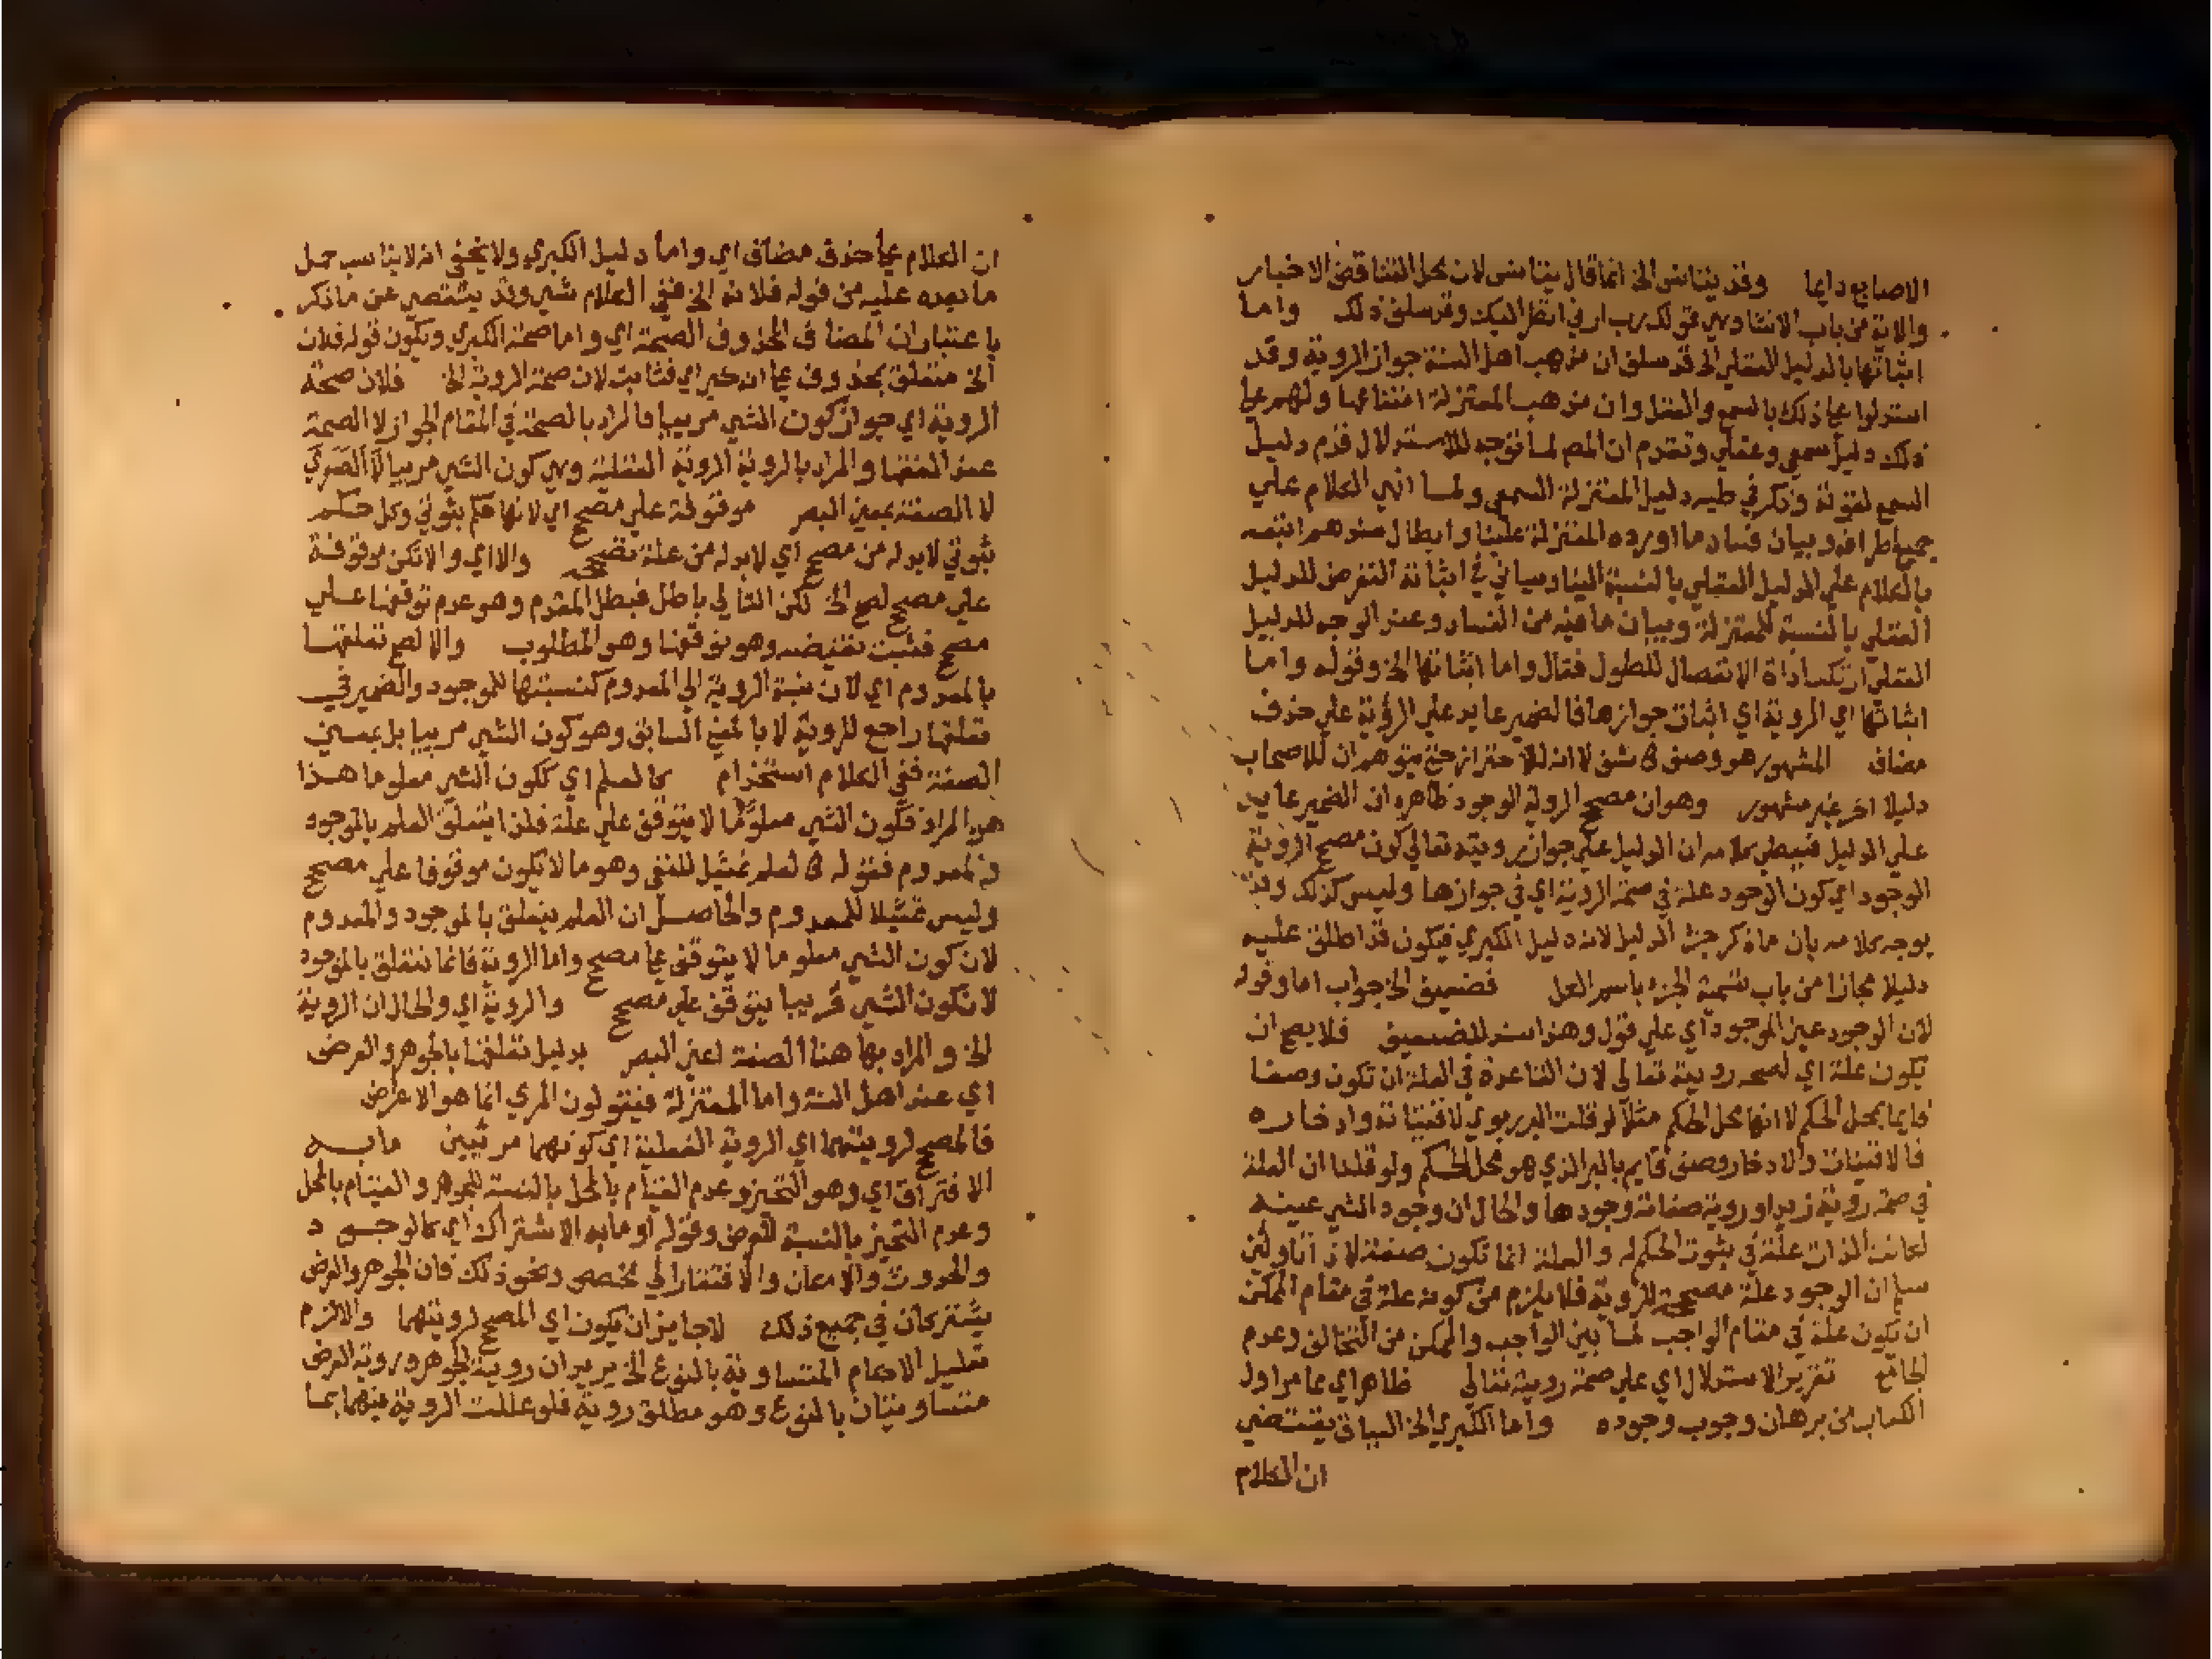 الاصابع دايما وقد يناس الخ انما قال يناس لان محل التناقض الاخبار
والاية من باب الانشاد هي قولك رب ارني انظر اليك وقد سلف ذلك واما
اثباتها بالدليل العقلي الخ قد سلف ان مذهب اهل السنة جواز الروية وقد
استدلوا على ذلك بالسمع والعقل وان مذهب المعتزلة امتناعها ولهم على
ذلك دليل سمعي وعقلي وتقدم ان المص لما توجه للاستدلال قدم دليل
السمع لقوته وذكر في طيه دليل المعتزلة السمعي ولما انهى الكلام علي
جميع اطرافه وبيان فساد ما اورده المعتزلة علينا وابطال سندهم اتبعه
بالكلام علي الدليل العقلي بالنسبة الينا وسياتي في اثباته التعرض للدليل
العقلي بالنسبة للمعتزلة وبيان ما فيه من الفساد وعند الوجه للدليل
العقلي ارتكب اداة الانفصال للطول فقال واما اثباتها الخ وقوله واما
اثباتها اي الروية اي اثبات جوازها فالضمير عايد علي الرؤية علي حذف
مضاف المشهور هو وصف كاشف لا انه للاحتراز حتي يتوهم ان للاصحاب
دليلا اخر غير مشهور وهو ان مصحح الروية الوجود ظاهره ان الضمير عايد
علي الدليل فيعطي كلامه ان الدليل علي جواز رويته تعالي كون مصحح الروية
الوجود اي كون الوجود علة في صحة الروية اي في جوازها وليس كذلك وقد
يوجه كلامه بان ما ذكر جزء الدليل لانه دليل الكبري فيكون قد اطلق عليه
دليلا مجازا من باب تسمية الجزء باسم الكل فضعيف الخ جواب اما وقوله
لان الوجود عين الموجود اي علي قول وهذا سند للضعيف فلا يصح ان
تكون علة اي لصحه رويته تعالي لان القاعدة في العلة ان تكون وصفا
قايما بمحل الحكم لا انها محل الحكم مثلا لو قلت البر ربوي لاقتياته وادخاره
فالاقتيات والادخار وصف قايم بالبر الذي هو محل الحكم ولو قلنا ان العلة
في صحة روية زيد او روية صفاته وجودها والحال ان وجود الشي عينه
لكانت الذات علة في ثبوت الحكم له والعلة انما تكون صفة لا ذاتا ولئن
سلم ان الوجود علة مصححة للروية فلا يلزم من كونه علة في مقام الممكن
ان تكون علة في مقام الواجب لما بين الواجب والممكن من التخالف وعدم
الجامع تقرير الاستدلال اي علي صحة رويته تعالي ظاهر اي مما مر اول
الكتاب من برهان وجوب وجوده واما الكبري الخ السياق يقتضي
ان الكلام
ان الكلام علي حذف مضاف اي واما دليل الكبري ولا يخفي انه لا يناسب حمل
ما بعده عليه من قوله فلانه الخ ففي الكلام شي وقد يتقصي عن ما ذكر
باعتبار ان المضاف المحذوف الصحة اي واما صحة الكبري ويكون قوله فلان
الخ متعلق بمحذوف علي انه خبر اي فثابت لان صحة الروية الخ فلان صحة
الروية اي جواز كون الشي مرييا فالمراد بالصحة في المقام الجواز لا الصحة
عند الفقها والمراد بالروية الروية الفعلية وهي كون الشي مرييا لا المصدري
لا الصفة بمعني البصر موقوفة علي مصحح اي لانها حكم ثبوتي وكل حكم
ثبوتي لابد له من مصحح اي لابد له من علة تصححه والا اي والا تكن موقوفة
علي مصحح لصح الخ لكن التالي باطل فبطل المقدم وهو عدم توقفها علي
مصحح فثبت نقيضه وهو توقفها وهو المطلوب والا لصح تعلقها
بالمعدوم اي لان نسبة الروية الي المعدوم كنسبتها للموجود والضمير في
تعلقها راجع للروية لا بالمعني السابق وهو كون الشي مرييا بل بمعني
الصفة ففي الكلام استخدام كالعلم اي ككون الشي معلوما هذا
هو المراد فكون الشي معلوما لا يتوقف علي علة فلذا يتعلق العلم بالموجود
والمعدوم فقوله كالعلم تمثيل للنفي وهو ما لا تكون موقوفا علي مصحح
وليس تمثيلا للمعدوم والحاصل ان العلم يتعلق بالموجود والمعدوم
لان كون الشي معلوما لا يتوقف علي مصحح واما الروية فانما تتعلق بالموجود
لان كون الشي مرييا يتوقف علي مصحح والروية اي والحال ان الروية
الخ والمراد بها هنا الصفة اعني البصر بدليل تعلقها بالجوهر والعرض
اي عند اهل السنة واما المعتزلة فيقولون المري انما هو الاعراض
فالمصحح لرويتهما اي الروية الفعلية اي كونهما مرئيين ما به
الافتراق اي وهو التحيز وعدم القيام بالمحل بالنسبة للجوهر والقيام بالمحل
وعدم التحيز بالنسبة للعرض وقوله او ما به الاشتراك اي كالوجود
والحدوث والامكان والافتقار الي مخصص ونحو ذلك فان الجوهر والعرض
يشتركان في جميع ذلك لا جايز ان يكون اي المصحح لرويتهما والا لزم
تعليل الاحكام المتساوية بالنوع الخ يريد ان روية الجوهر وروية العرض
متساويتان بالنوع وهو مطلق روية فلو عللت الروية فيهما بما